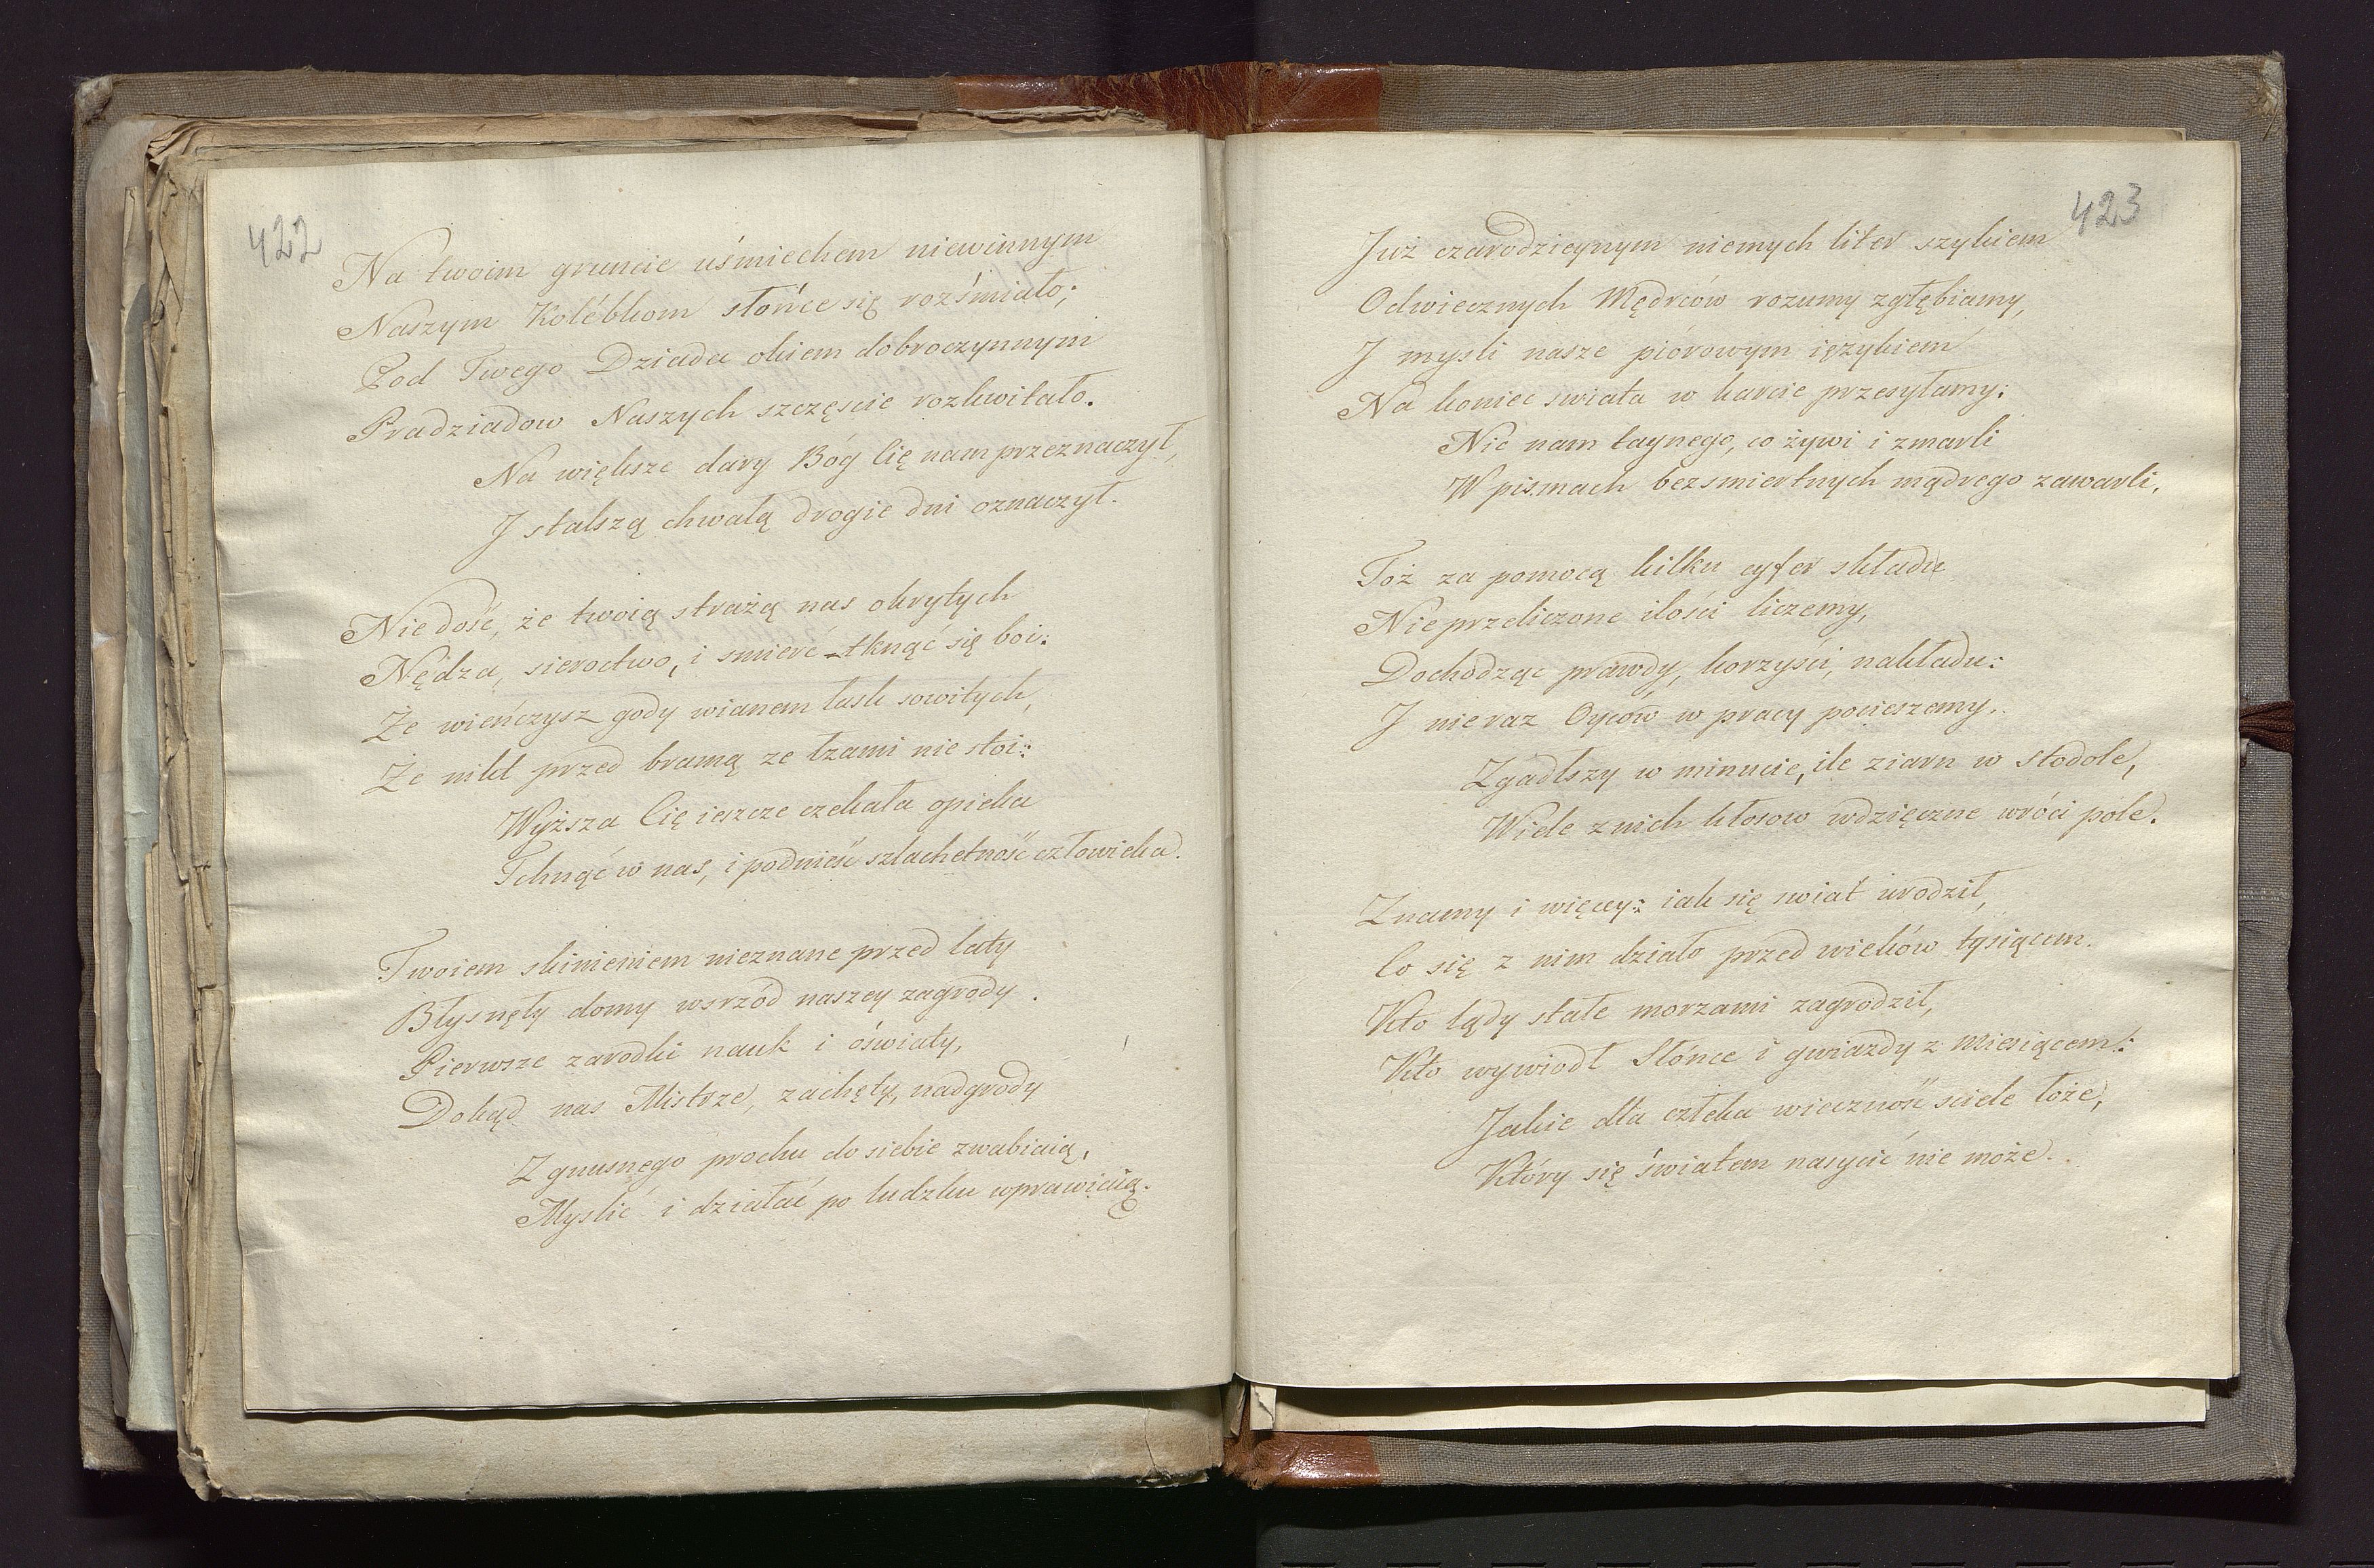 422
Na twoim gruncie uśmiechem niewinnym
Naszym Kolébkom słońce się rozśmiało;
Pod Twego Dziada okiem dobroczynnym
Pradziadow Naszych szczęscie rozkwitało.
Na większe dary Bóg Cię nam przeznaczył,
J stalszą chwałą drogie dni oznaczył.
Nie dość, że twoią strażą nas okrytych
Nędza, sieroctwo, i smierć tknąć się boi:
Że wieńczysz gody wianem łask sowitych,
Że nikt przed bramą ze łzami nie stoi:
Wyższa Cię ieszcze czekała opieka
Tchnąć w nas, i podnieść szlachetność człowieka.
Twoiem skinieniem nieznane przed laty
Błysnęły domy wsrzód naszey zagrody.
Pierwsze zarodki nauk i óświaty,
Dokąd nas Mistrze, zachęty, nadgrody
Z gnusnego prochu do siebie zwabiaią,
Myslić i działać po ludzku wprawiaią.
423
Już czarodzieynym niemych liter szykiem
Odwiecznych Mędrców rozumy zgłębiamy,
J mysli nasze piórowym ięzykiem
Na koniec swiata w karcie przesyłamy:
Nic nam taynego, co żywi i zmarli
W pismach bezsmiertnych mądrego zawarli.
Toż za pomocą kilku cyfer składu
Nieprzeliczone ilości liczemy,
Dochodząc prawdy, korzyści, nakładu:
J nieraz Oyców w pracy pocieszemy.
Zgadłszy w minucie, ile ziarn w stodole,
Wiele z nich kłosow wdzięczne wróci pole.
Znamy i więcey: iak się swiat urodził,
Co się z nim działo przed wieków tysiącem.
Kto lądy stałe morzami zagrodził,
Kto wywiodł Słónce i gwiazdy z Miesiącem:
Jakie dla człeka wieczność sciele łoże,
Który się światem nasycić nie może.